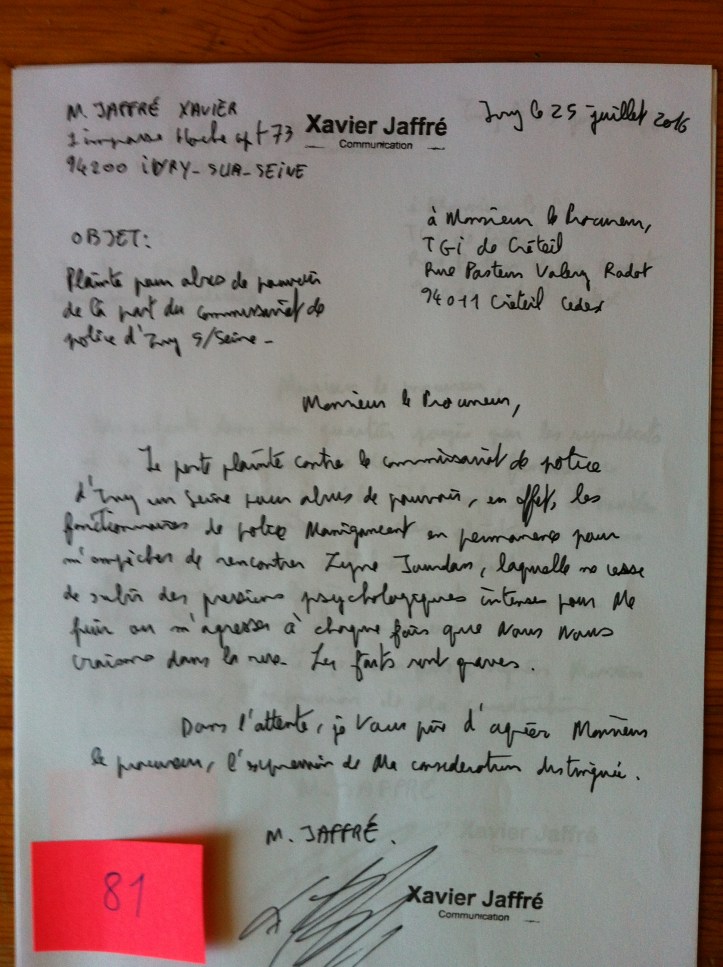 M. JAFFRÉ XAVIER
1 impasse Hoche apt 73
94200 IVRY-SUR-SEINE
Xavier Jaffré
Communication
Ivry le 25 juillet 2016
à Monsieur le Procureur,
TGI de Créteil
Rue Pasteur Valery Radot
94011 Créteil Cedex
OBJET:
Plainte pour abus de pouvoir
de la part du commissariat de
police d'Ivry S/Seine -
Monsieur le Procureur,
Je porte plainte contre le commissariat de police
d'Ivry sur Seine pour abus de pouvoir, en effet, les
fonctionnaires de police Manigancent en permanence pour
m'empêcher de rencontrer laquelle ne cesse
de subir des pressions psychologiques intenses pour Me
fuir ou m'agresser à chaque fois que Nous Nous
croisons dans la rue. Les faits sont graves.
Dans l'attente, je Vous prie d'agréer Monsieur
le procureur, l'expression de Ma considération distinguée.
M. JAFFRÉ.
81
Xavier Jaffré
Communication